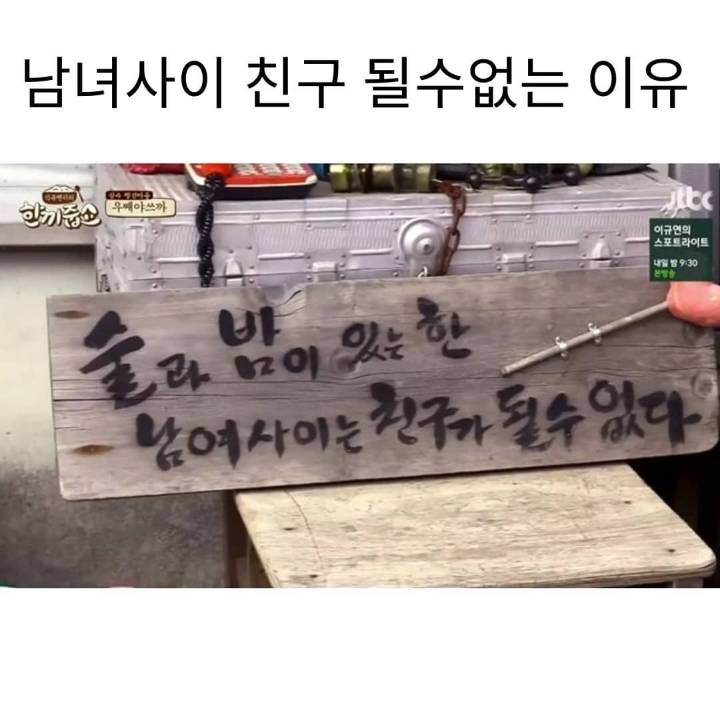 남녀사이 친구 될수없는 이유
식큐멘터리
한끼줍쇼
우째야쓰까
jtbc
이규연의
스포트라이트
내일 밤 9:30
본방송
술과 밤이 있는 한
남여사이는 친구가 될수 없다